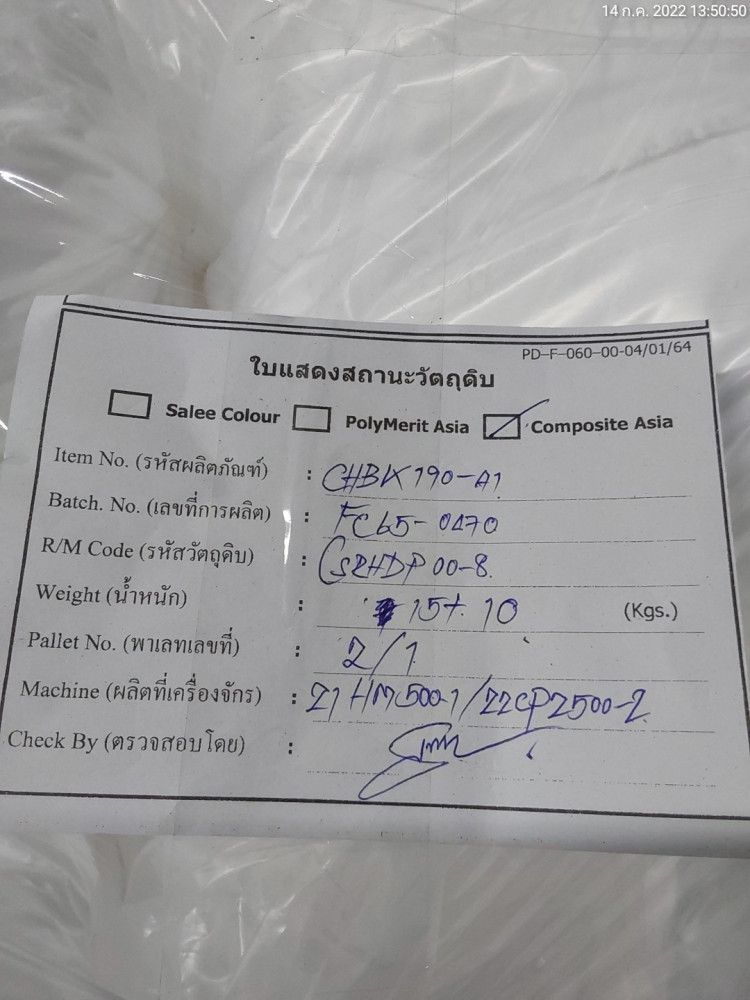 14 ก.ค. 2022 13:50:50
PD-F-060-00-04/01/64
ใบแสดงสถานะวัตถุดิบ
Salee Colour PolyMerit Asia Composite Asia
Item No. (รหัสผลิตภัณฑ์) : CHBK190-A1
Batch. No. (เลขที่การผลิต) : FC65-0470
R/M Code (รหัสวัตถุดิบ) : CSRHDP00-8
Weight (น้ำหนัก) : 15+10 (Kgs.)
Pallet No. (พาเลทเลขที่) : 2/1
Machine (ผลิตที่เครื่องจักร) : Z1HM500-1/ZZCPZ500-2
Check By (ตรวจสอบโดย) :